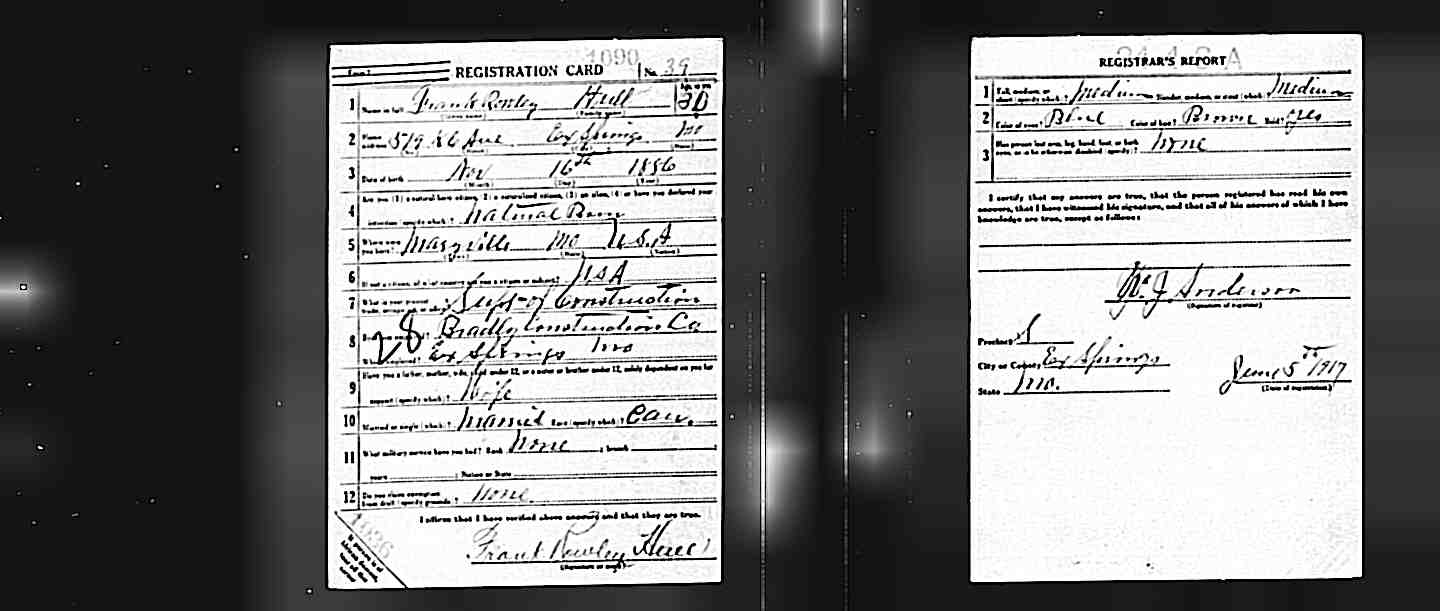 1090
REGISTRATION CARD No. 39
1 Name in full Frank Rowley Hull Age, in yrs 30
(Given name) (Family name)
2 Home address 519 Ave Ex Springs Mo
(No.) (Street) (City) (State)
3 Date of birth Nov 16th 1886
(Month) (Day) (Year)
4 Are you (1) a natural born citizen, (2) a naturalized citizen, (3) an alien, (4) or have you declared your
intention (specify which)? Natural Born
5 Where were you born? Maryville Mo U.S.A
(Town) (State) (Nation)
6 If not a citizen, of what country are you a citizen or subject? USA
7 What is your present trade, occupation, or office? Supt-of Construction
8 By whom employed? Bradly Construction Co
Where employed? Ex Springs Mo
9 Have you a father, mother, wife, child under 12, or a sister or brother under 12, solely dependent on you for
support (specify which)? Wife
10 Married or single (which)? Married Race (specify which)? Cau.
11 What military service have you had? Rank None ; branch
years ; Nation or State
12 Do you claim exemption from draft (specify grounds)? None
I affirm that I have verified above answers and that they are true.
Frank Rowley Hull
(Signature or mark)
If person is of African descent, tear off this corner
REGISTRAR'S REPORT
1 Tall, medium, or short (specify which)? Medium Slender, medium, or stout (which)? Medium
2 Color of eyes? Blue Color of hair? Brown Bald? Yes
3 Has person lost arm, leg, hand, foot, or both eyes, or is he otherwise disabled (specify)? None
I certify that my answers are true, that the person registered has read his own
answers, that I have witnessed his signature, and that all of his answers of which I have
knowledge are true, except as follows:
W. J. Anderson
(Signature of registrar)
Precinct
City or County Ex Springs
State Mo.
June 5th 1917
(Date of registration)